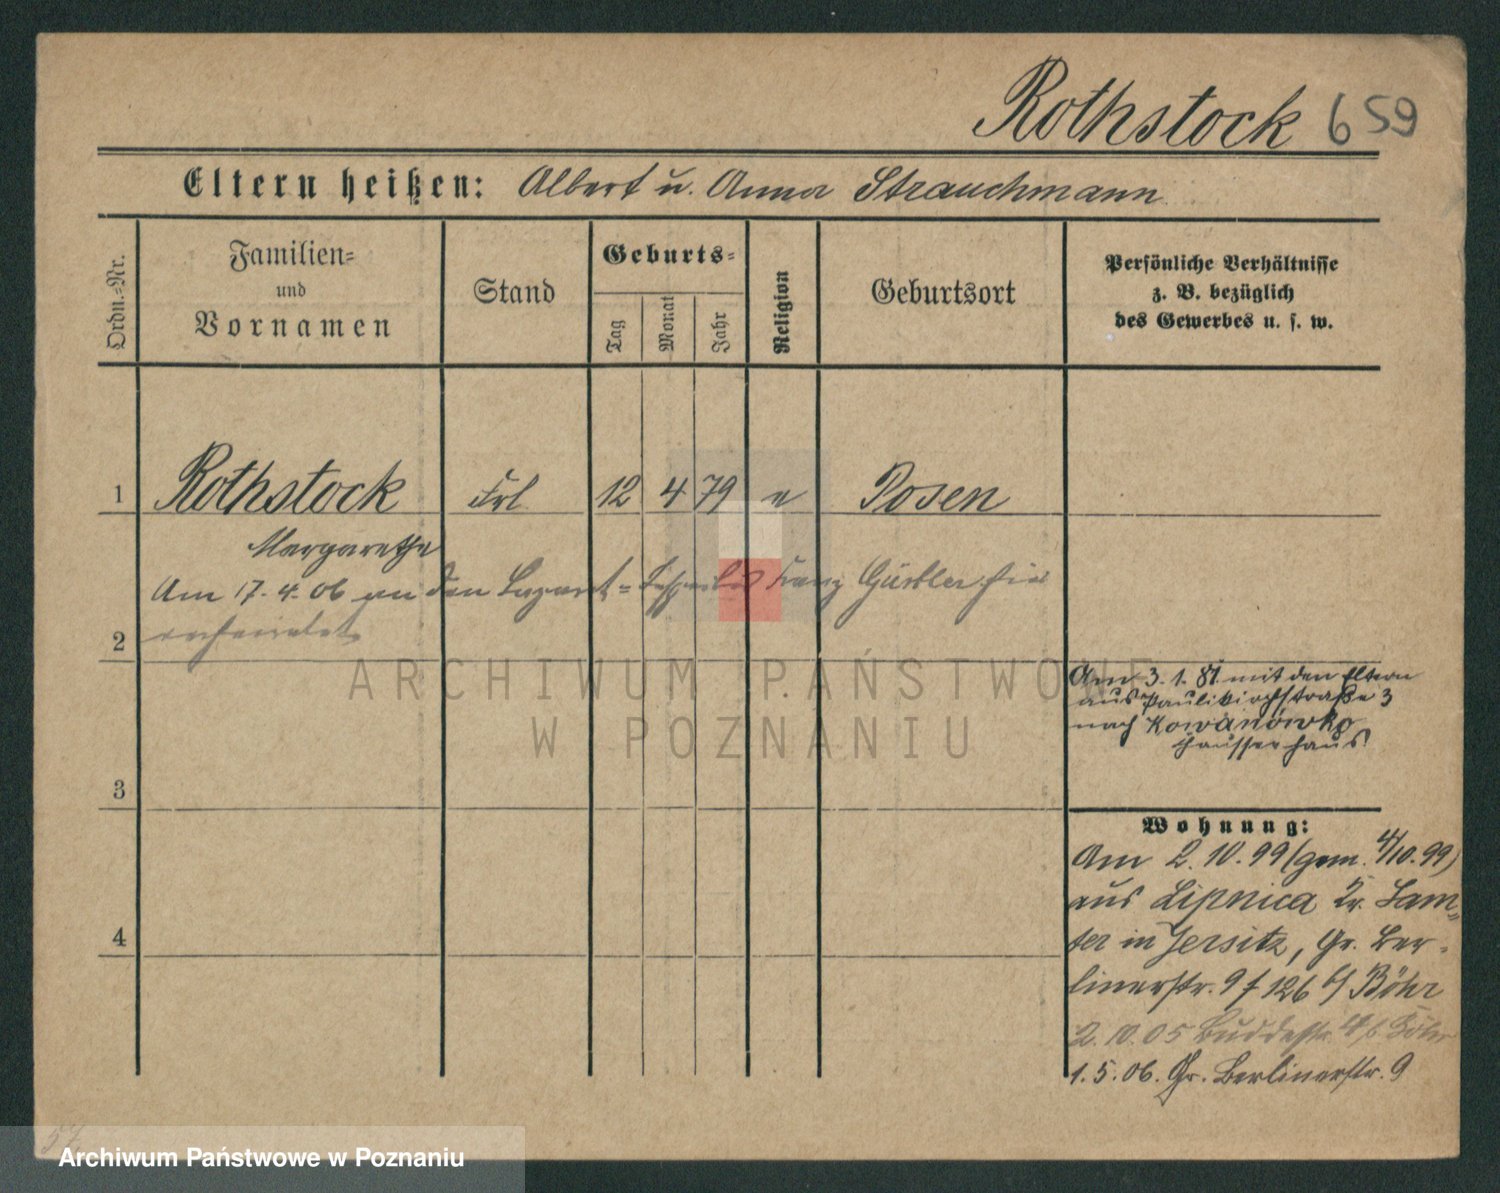 Rothstock 659
Eltern heißen: Albert u. Anna Strauchmann.
Ordn.-Nr.
Familien-
und
Vornamen
Stand
Geburts-
Tag
Monat
Jahr
Religion
Geburtsort
Persönliche Verhältnisse
z. B. bezüglich
des Gewerbes u. s. w.
1 Rothstock Frl 12 4 79 e Posen
Margarethe
Am 17. 4. 06 an den Lazaret- Franz Gürtler hier
2 verheiratet
Am 3. 1. 81 mit den Eltern
aus Paulikirchstraße 3
nach Kowanówko
Chausseehaus
3
Wohnung:
Am 2. 10. 99 (gem. 4/10. 99)
aus Lipnica Kr. Sam-
ter in Jersitz, Gr. Ber-
linerstr. 9 f 126 b/ Böhr
4
2. 10. 05 Buddestr.
1. 5. 06. Gr. Berlinerstr. 9
57
ARCHIWUM PAŃSTWOWE
W POZNANIU
Archiwum Państwowe w Poznaniu